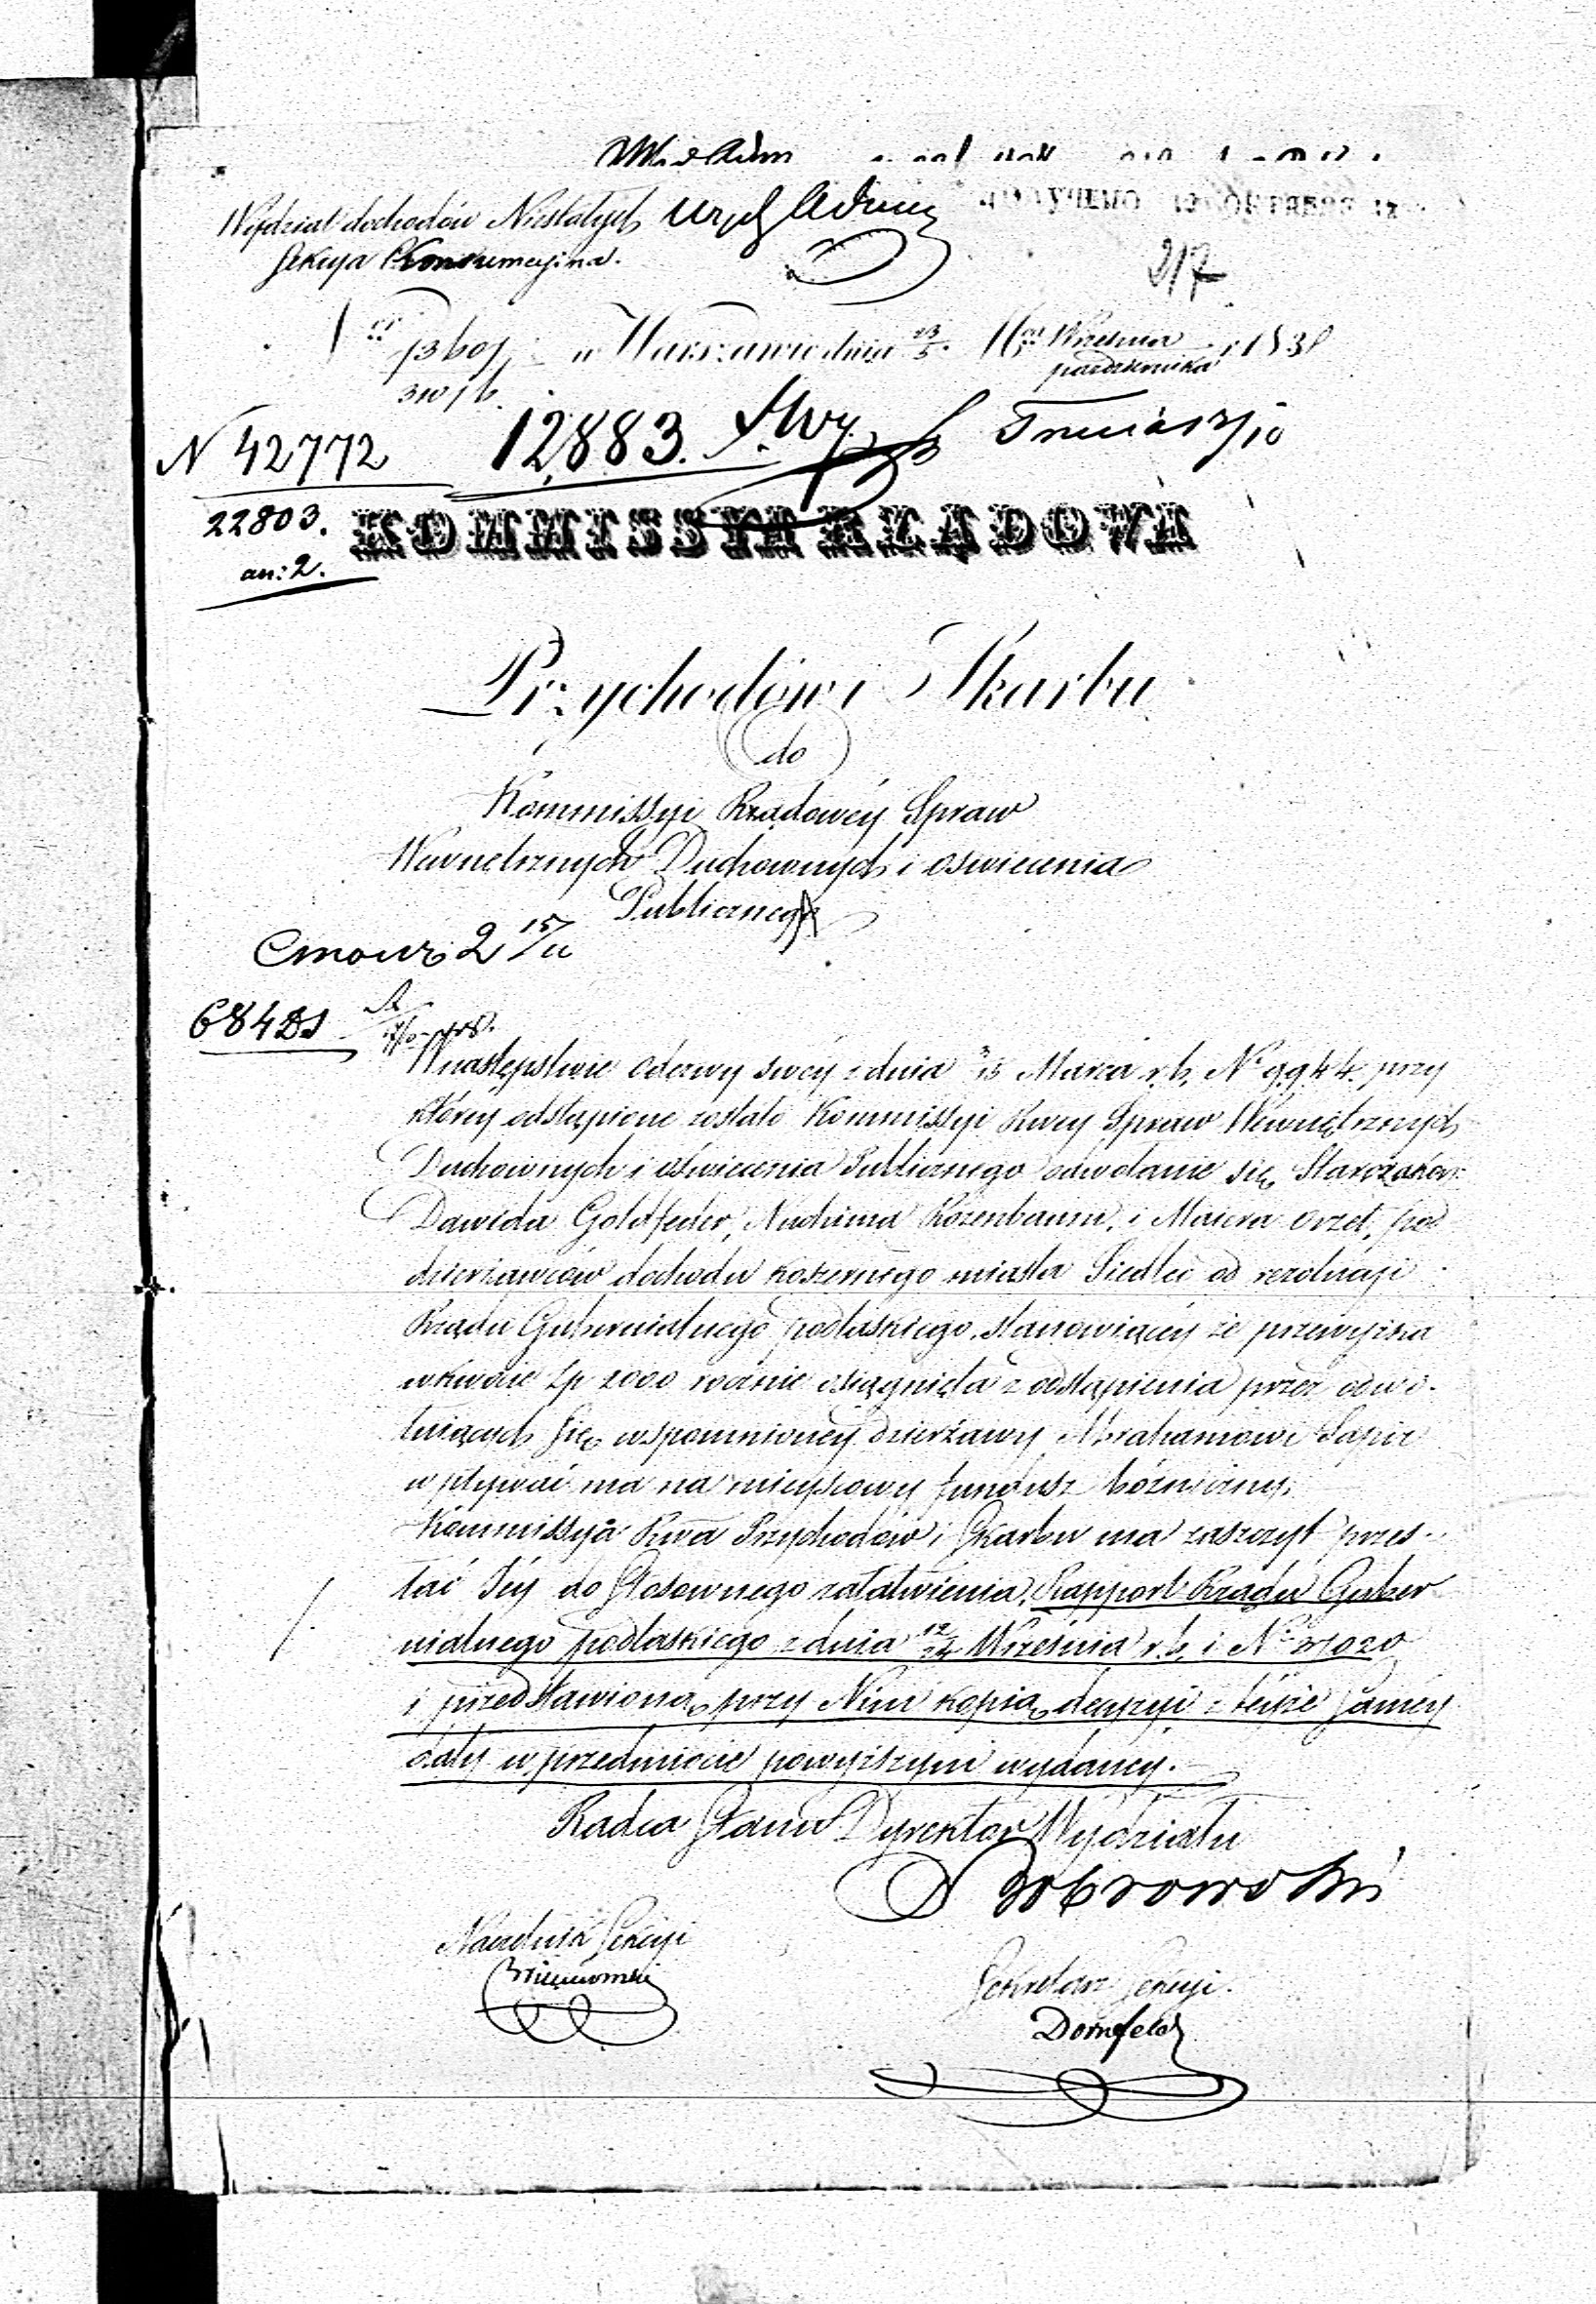 Wydział dochodów Niestałych
Sekcya Konsumcyjna.
217
w Warszawie dnia 23/5. Września / pazdziernika 183
N 42772
12883.
22803.
an: 2.
KOMMISSYA RZĄDOWA
Przychodów i Skarbu
do
Kommissyi Rządowéy Spraw
Wewnętrznych Duchownych i oswiecenia
Publicznego
W następstwie odezwy swéy z dnia 3/15 Marca r. b. Nº 9944. przy
któréy odstąpione zostało Kommissyi Rwéy Spraw Wewnętrznych
Duchownych i oświecenia Publicznego odwołanie się Starozakon:
Dawida Goldfeder, Nuchima Rozenbaum, i Maiera Orzeł, pod
dzierżawców dochodu koszernego miasta Siedlec od rezolucyi
Rządu Gubernialnego podlaskiego, stanowiącéy że przewyżka
w kwocie Zp 2000 rocznie osiągnięta z odstąpienia przez odwo-
łuiących się wspomnionéy dzierżawy Abrahamowi Sapir
wpływać ma na mieyscowy fundusz bóżniczny,
Kommissya Rwa Przychodów i Skarbu ma zaszczyt przes-
łać Jéy do stosownego załatwienia, Rapport Rządu Guber
nialnego podlaskiego z dnia 12/24 Września r. b. i Nº 27020
i przedstawioną przy Nim kopią decyzyi z téyże saméy
daty w przedmiocie powyższym wydanéy.
Radca Stanu Dyrektor Wydziału
Naczelnik Sekcyi
Sekretarz Sekcyi.
Dornfeld